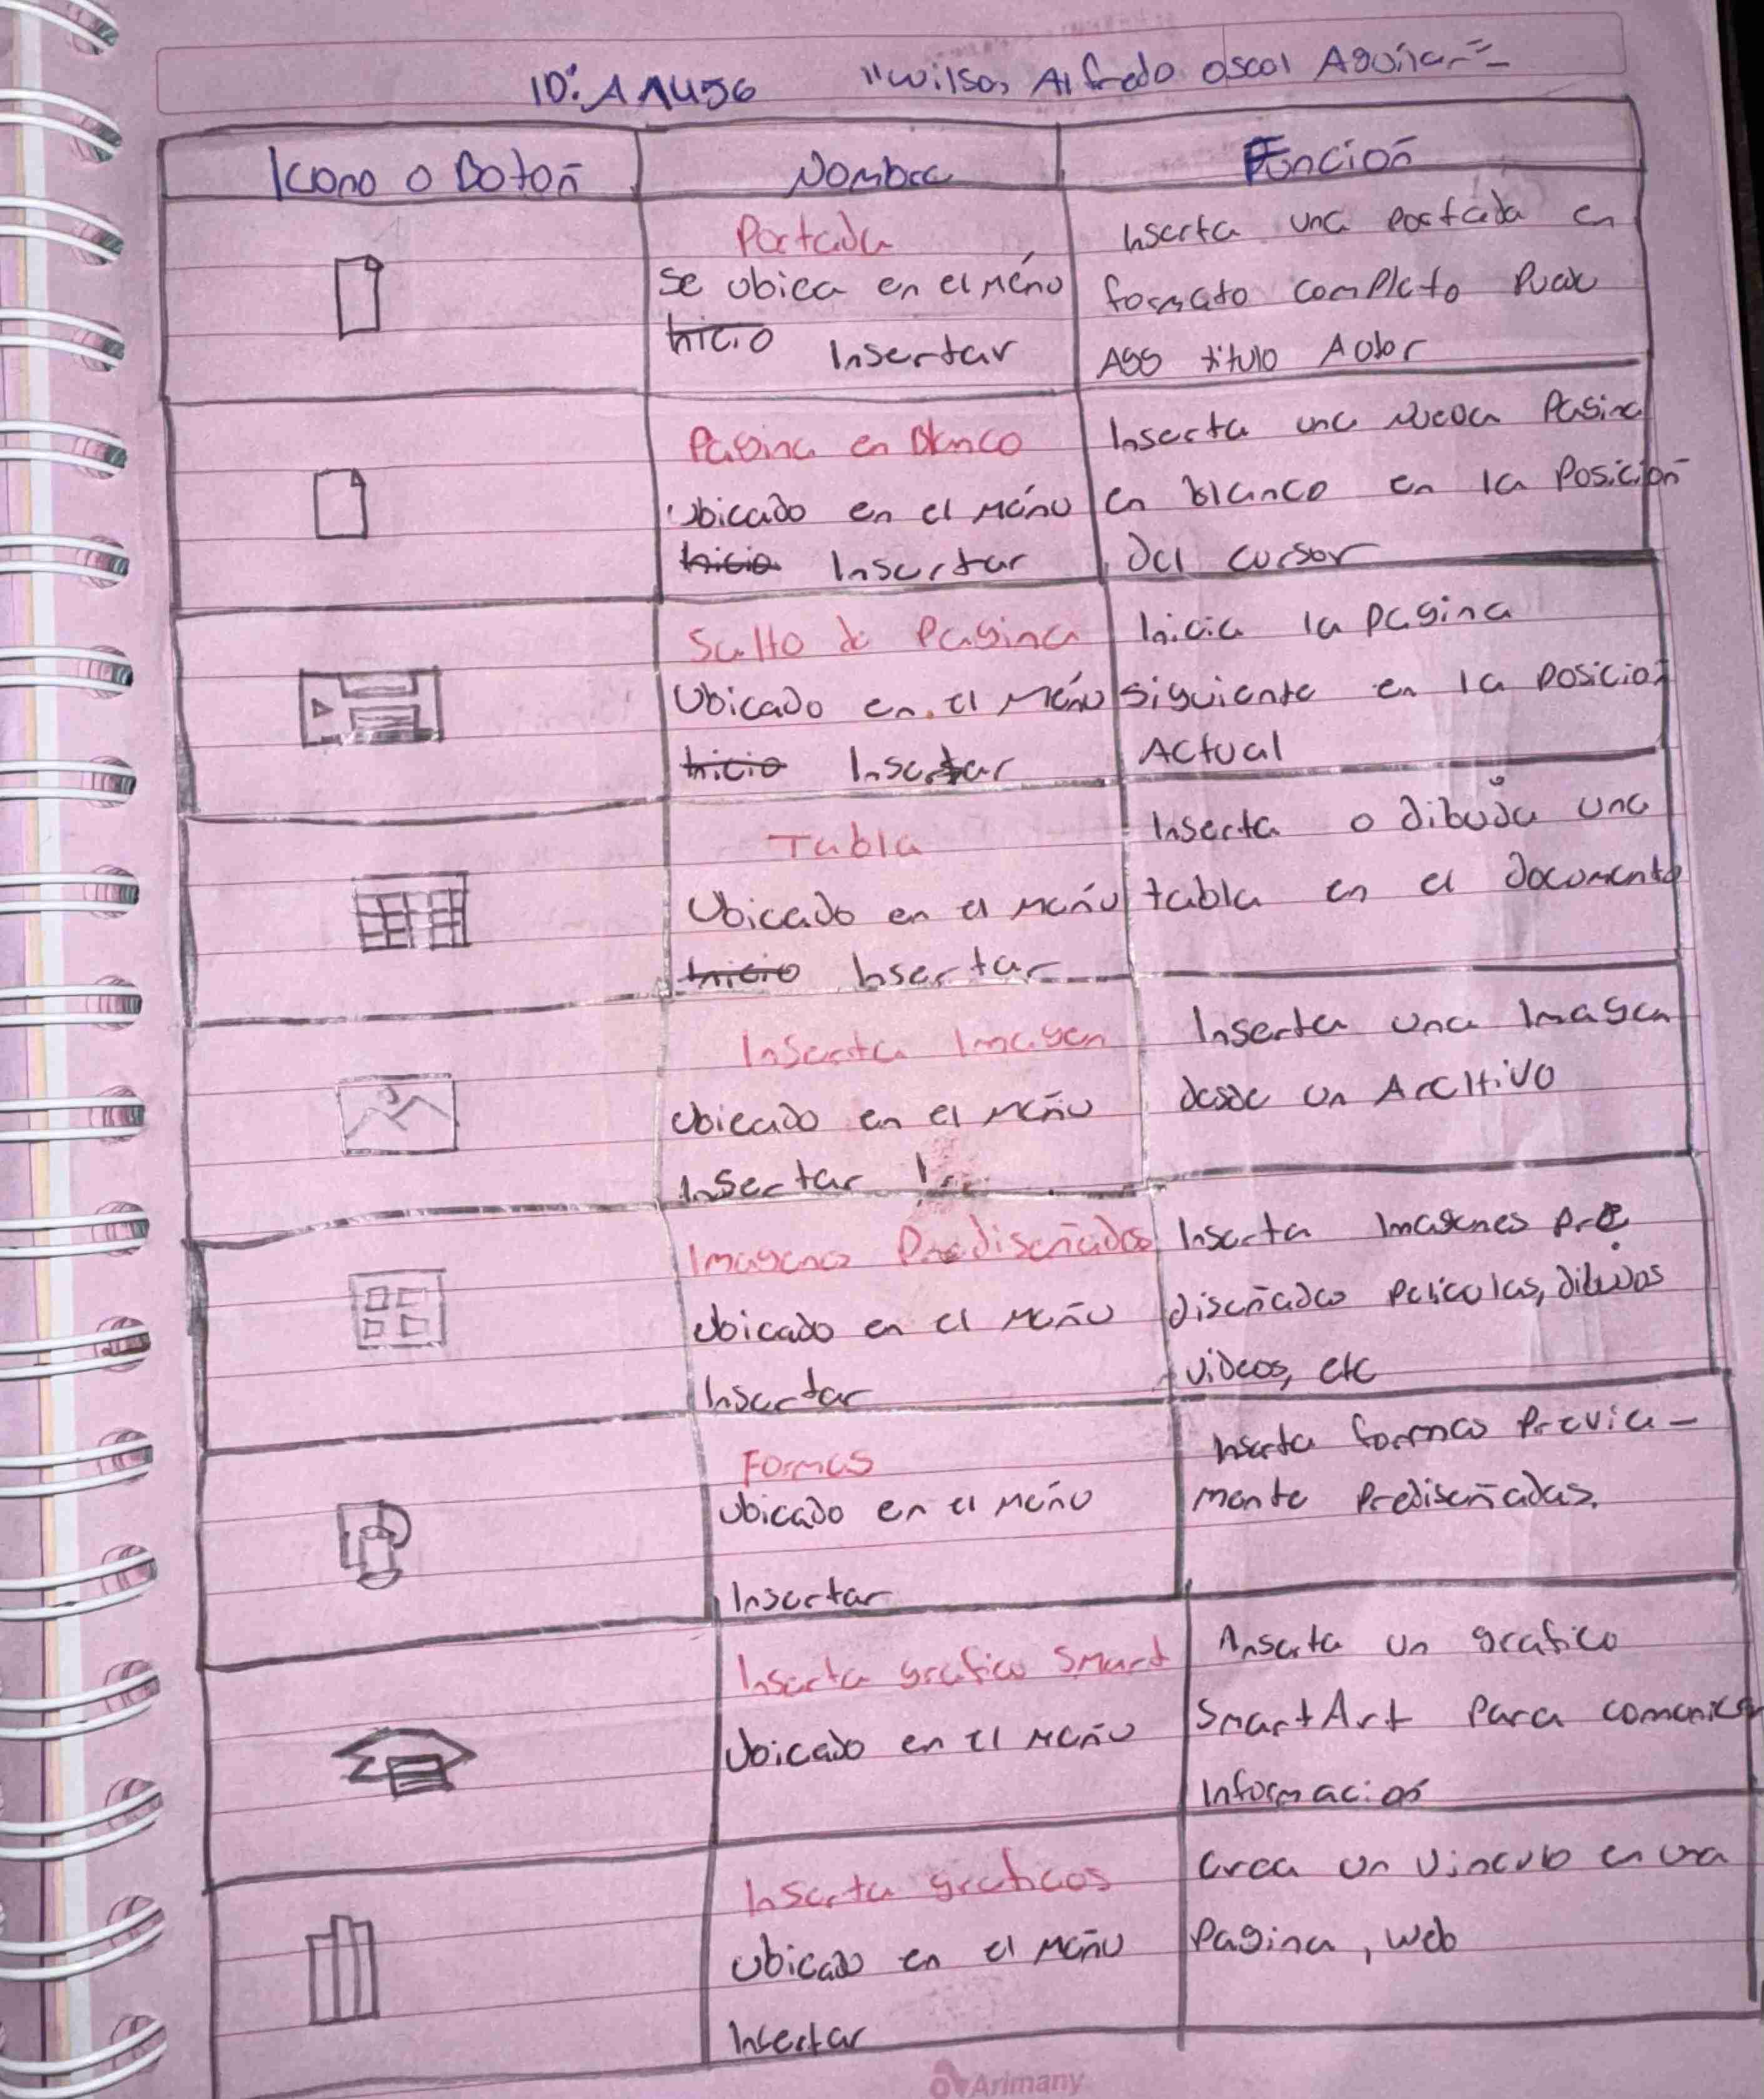 "Wilson Alfredo oscal Aguilar"
Icono o Boton
Nombre
Función
Portada
se ubica en el menú
Inicio Insertar
Inserta una portada en
formato completo
titulo Autor
Pagina en Blanco
Ubicado en el menú
Inicio Insertar
Inserta una Nueva Pagina
en blanco en la Posición
Del cursor
Salto de Pagina
Ubicado en el Menú
Inicio Insertar
Inicia la pagina
siguiente en la posicion
Actual
Tabla
Ubicado en el menú
Inicio Insertar
Inserta o dibuja una
tabla en el documento
Inserta Imagen
Ubicado en el menú
Insertar
Inserta una Imagen
desde un Archivo
Imagenes Prediseñados
Ubicado en el menú
Insertar
Inserta Imagenes pre
diseñadas peliculas, dibujos
videos, etc
Formas
Ubicado en el menú
Insertar
Inserta formas Previa-
mente Prediseñadas.
Inserta grafico Smart
Ubicado en el menú
Inserta un grafico
SmartArt Para comunicar
Información
Inserta graficos
Ubicado en el menú
Insertar
Crea un Vinculo en una
Pagina, web
Arimany